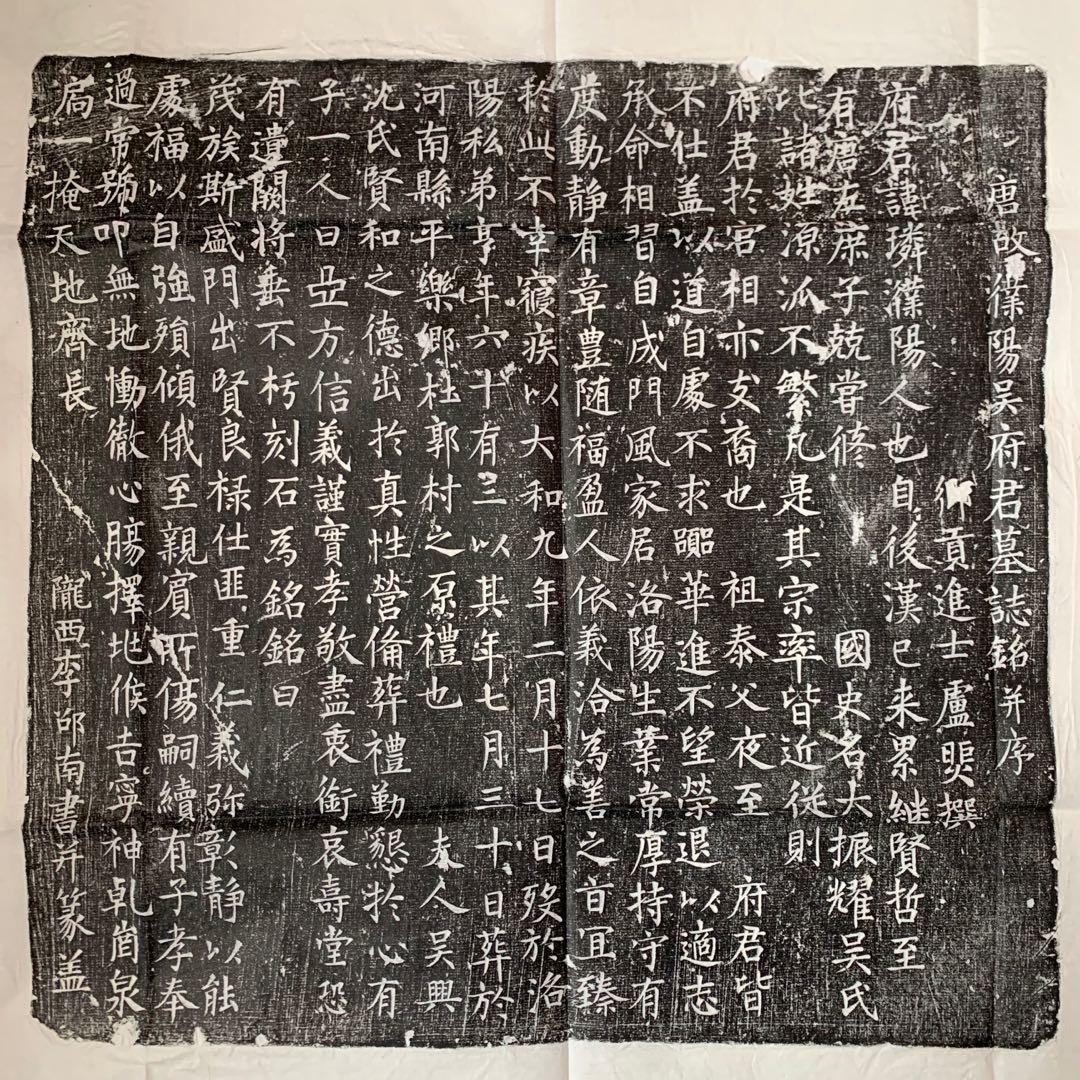 唐故濮陽吳府君墓誌銘并序
鄉貢進士盧㷼撰
府君諱璘濮陽人也自後漢已来累継賢哲至
有唐左庶子兢嘗修國史名大振耀吳氏
比諸姓源派不繁凡是其宗率皆近從則
府君於宮相亦支裔也祖泰父夜至府君皆
不仕盖以道自處不求嚻華進不望榮退以適志
承命相習自成門風家居洛陽生業常厚持守有
度動静有章豊随福盈人依義洽為善之旨冝臻
扵此不幸寢疾以大和九年二月十七日歿於洛
陽私弟享年六十有三以其年七月三十日葬於
河南縣平樂鄉杜郭村之原禮也夫人吳興
沈氏賢和之德出扵真性營俻葬禮勤懇扵心有
子一人曰亞方信義謹實孝敬盡衷銜哀壽堂恐
有遺闕將垂不朽刻石為銘銘曰
茂族斯盛門出賢良禄仕匪重仁義弥彰静以能
處福以自強殞傾俄至親賔所傷嗣續有子孝奉
過常號叩無地慟徹心腸擇地候吉寧神乹崗泉
扃一掩天地齊長隴西李邵南書并篆盖